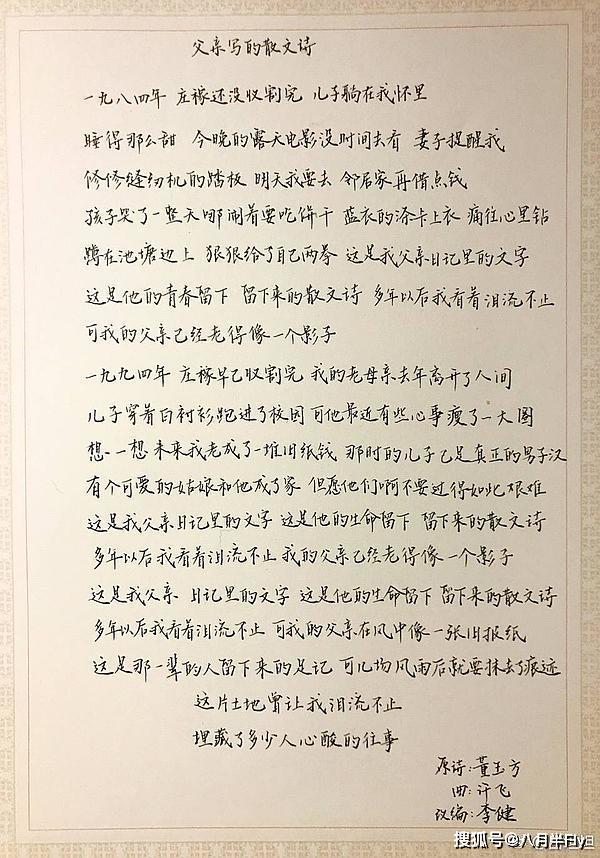 父亲写的散文诗
一九八四年 庄稼还没收割完 儿子躺在我怀里
睡得那么甜 今晚的露天电影没时间去看 妻子提醒我
修修缝纫机的踏板 明天我要去 邻居家再借点钱
孩子哭了一整天哪闹着要吃饼干 蓝衣的涤卡上衣 痛往心里钻
蹲在池塘边上 狠狠给了自己两拳 这是我父亲日记里的文字
这是他的青春留下 留下来的散文诗 多年以后我看着泪流不止
可我的父亲已经老得像一个影子
一九九四年 庄稼早已收割完 我的老母亲去年离开了人间
儿子穿着白衬衫跑进了校园 可他最近有些心事瘦了一大圈
想一想 未来我老成了一堆旧纸钱 那时的儿子已是真正的男子汉
有个可爱的姑娘和他成了家 但愿他们啊不要过得如此艰难
这是我父亲日记里的文字 这是他的生命留下 留下来的散文诗
多年以后我看着泪流不止 我的父亲已经老得像一个影子
这是我父亲 日记里的文字 这是他的生命留下 留下来的散文诗
多年以后我看着泪流不止 可我的父亲在风中像一张旧报纸
这是那一辈的人留下来的足记 可几场风雨后就要抹去了痕迹
这片土地曾让我泪流不止
埋藏了多少人心酸的往事
原诗:董玉方
曲:许飞
改编:李健
搜狐号@八月半日ya